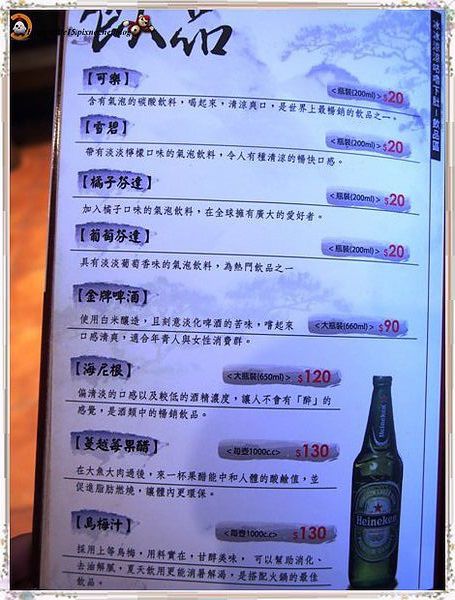 飲品
冰冰涼涼咕嚕下肚－飲品區
【可樂】
<瓶裝(200ml)> $20
含有氣泡的碳酸飲料，喝起來，清涼爽口，是世界上最暢銷的飲品之一。
【雪碧】
<瓶裝(200ml)> $20
帶有淡淡檸檬口味的氣泡飲料，令人有種清涼的暢快口感。
【橘子芬達】
<瓶裝(200ml)> $20
加入橘子口味的氣泡飲料，在全球擁有廣大的愛好者。
【葡萄芬達】
<瓶裝(200ml)> $20
具有淡淡葡萄香味的氣泡飲料，為熱門飲品之一
【金牌啤酒】
<大瓶裝(660ml)> $90
使用白米釀造，且刻意淡化啤酒的苦味，嚐起來
口感清爽，適合年青人與女性消費群。
【海尼根】
<大瓶裝(650ml)> $120
偏清淡的口感以及較低的酒精濃度，讓人不會有「醉」的
感覺，是酒類中的暢銷飲品。
【蔓越莓果醋】
<每壺1000c.c> $130
在大魚大肉過後，來一杯果醋能中和人體的酸鹼值，並
促進脂肪燃燒，讓體內更環保。
【烏梅汁】
<每壺1000c.c> $130
採用上等烏梅，用料實在，甘醇美味，可以幫助消化、
去油解膩，夏天飲用更能消暑解渴，是搭配火鍋的最佳
飲品。
Heineken
Heineken